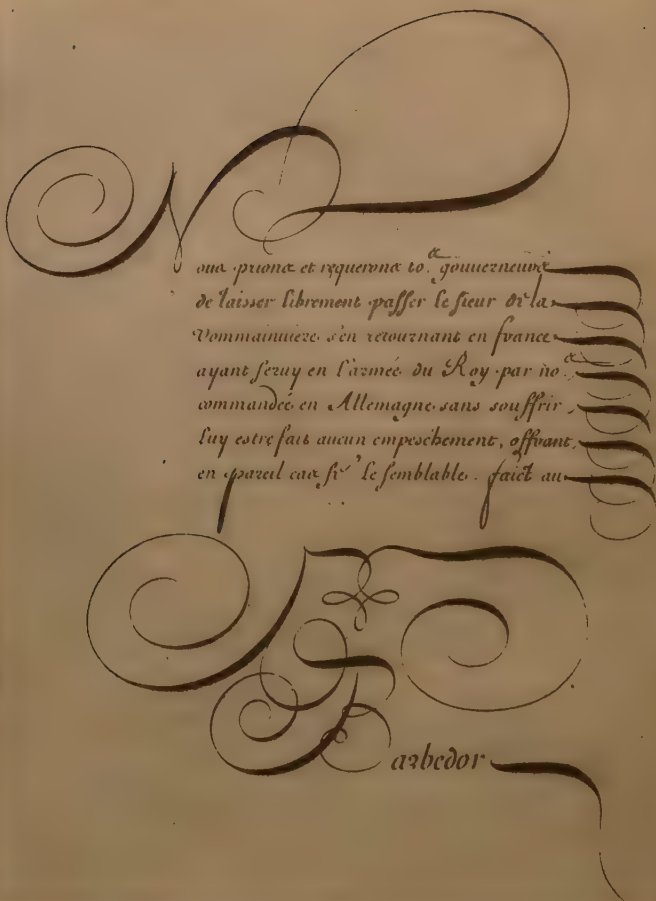 Nous prions et requerons to.s gouverneurs
de laisser librement passer le sieur de la
Vommainuiere s'en retournant en france
ayant seruy en l'armée du Roy par no.s
commandée en Allemagne sans souffrir
luy estre fait aucun empeschement, offrant
en pareil cas fr̃ le semblable. faict au
Barbedor